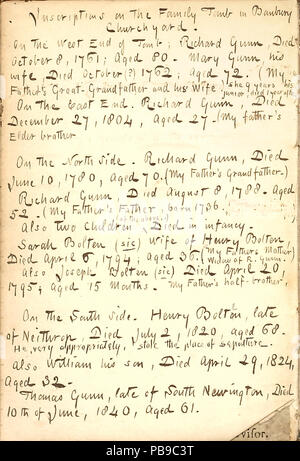 Inscriptions on the Family Tomb in Banbury
Churchyard.
On the West End of Tomb; Richard Gunn, Died
October 8, 1761; Aged 80. Mary Gunn, his
wife, Died October (?) 1762; Aged 72. (My
Father's Great-Grandfather and his Wife) she 9 years his
junior, died 1 year
On the East End. Richard Gunn, Died
December 27, 1804, Aged 27. (My father's
Elder brother
On the North Side. Richard Gunn, Died
June 10, 1780, Aged 70. (My Father's Grandfather.)
Richard Gunn Died August 8, 1788. Aged
52. (My Father's Father, born 1736.
Also two Children Died in infancy.
Sarah Bolton (sic) Wife of Henry Bolton,
Died April 6, 1794, Aged 36. (My Father's Mother)
(Widow of R. Gunn.
Also Joseph Bolton (sic) Died April 20,
1795, Aged 15 Months. My Father's half-brother.
On the South Side. Henry Bolton, late
of Neithrop, Died July 2, 1820, Aged 68.
He, very appropriately, stole the place of sepulture.
Also William his son, Died April 29, 1824,
Aged 32.
Thomas Gunn, late of South Newington, Died
10th of June, 1840, Aged 61.
visor.
alamy
PB9C3T